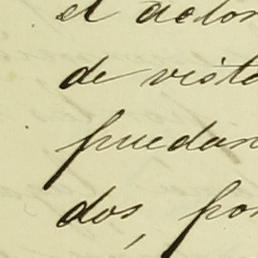 el actor
de vista
puedan
dos, por